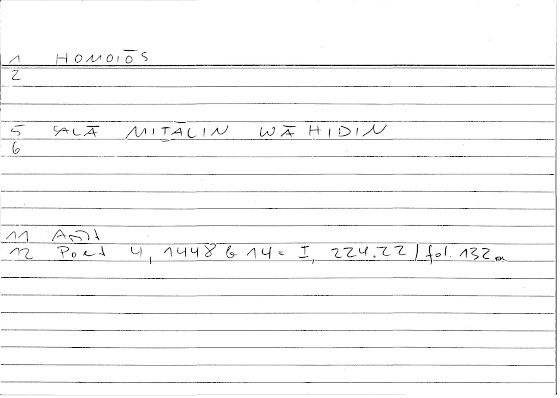 1 HOMOIŌS
2
5 ʿALĀ MIṮĀLIN WĀHIDIN
6
11 Arist
12 Poet 4, 1448 b 14 = I, 224.22 / fol. 132a